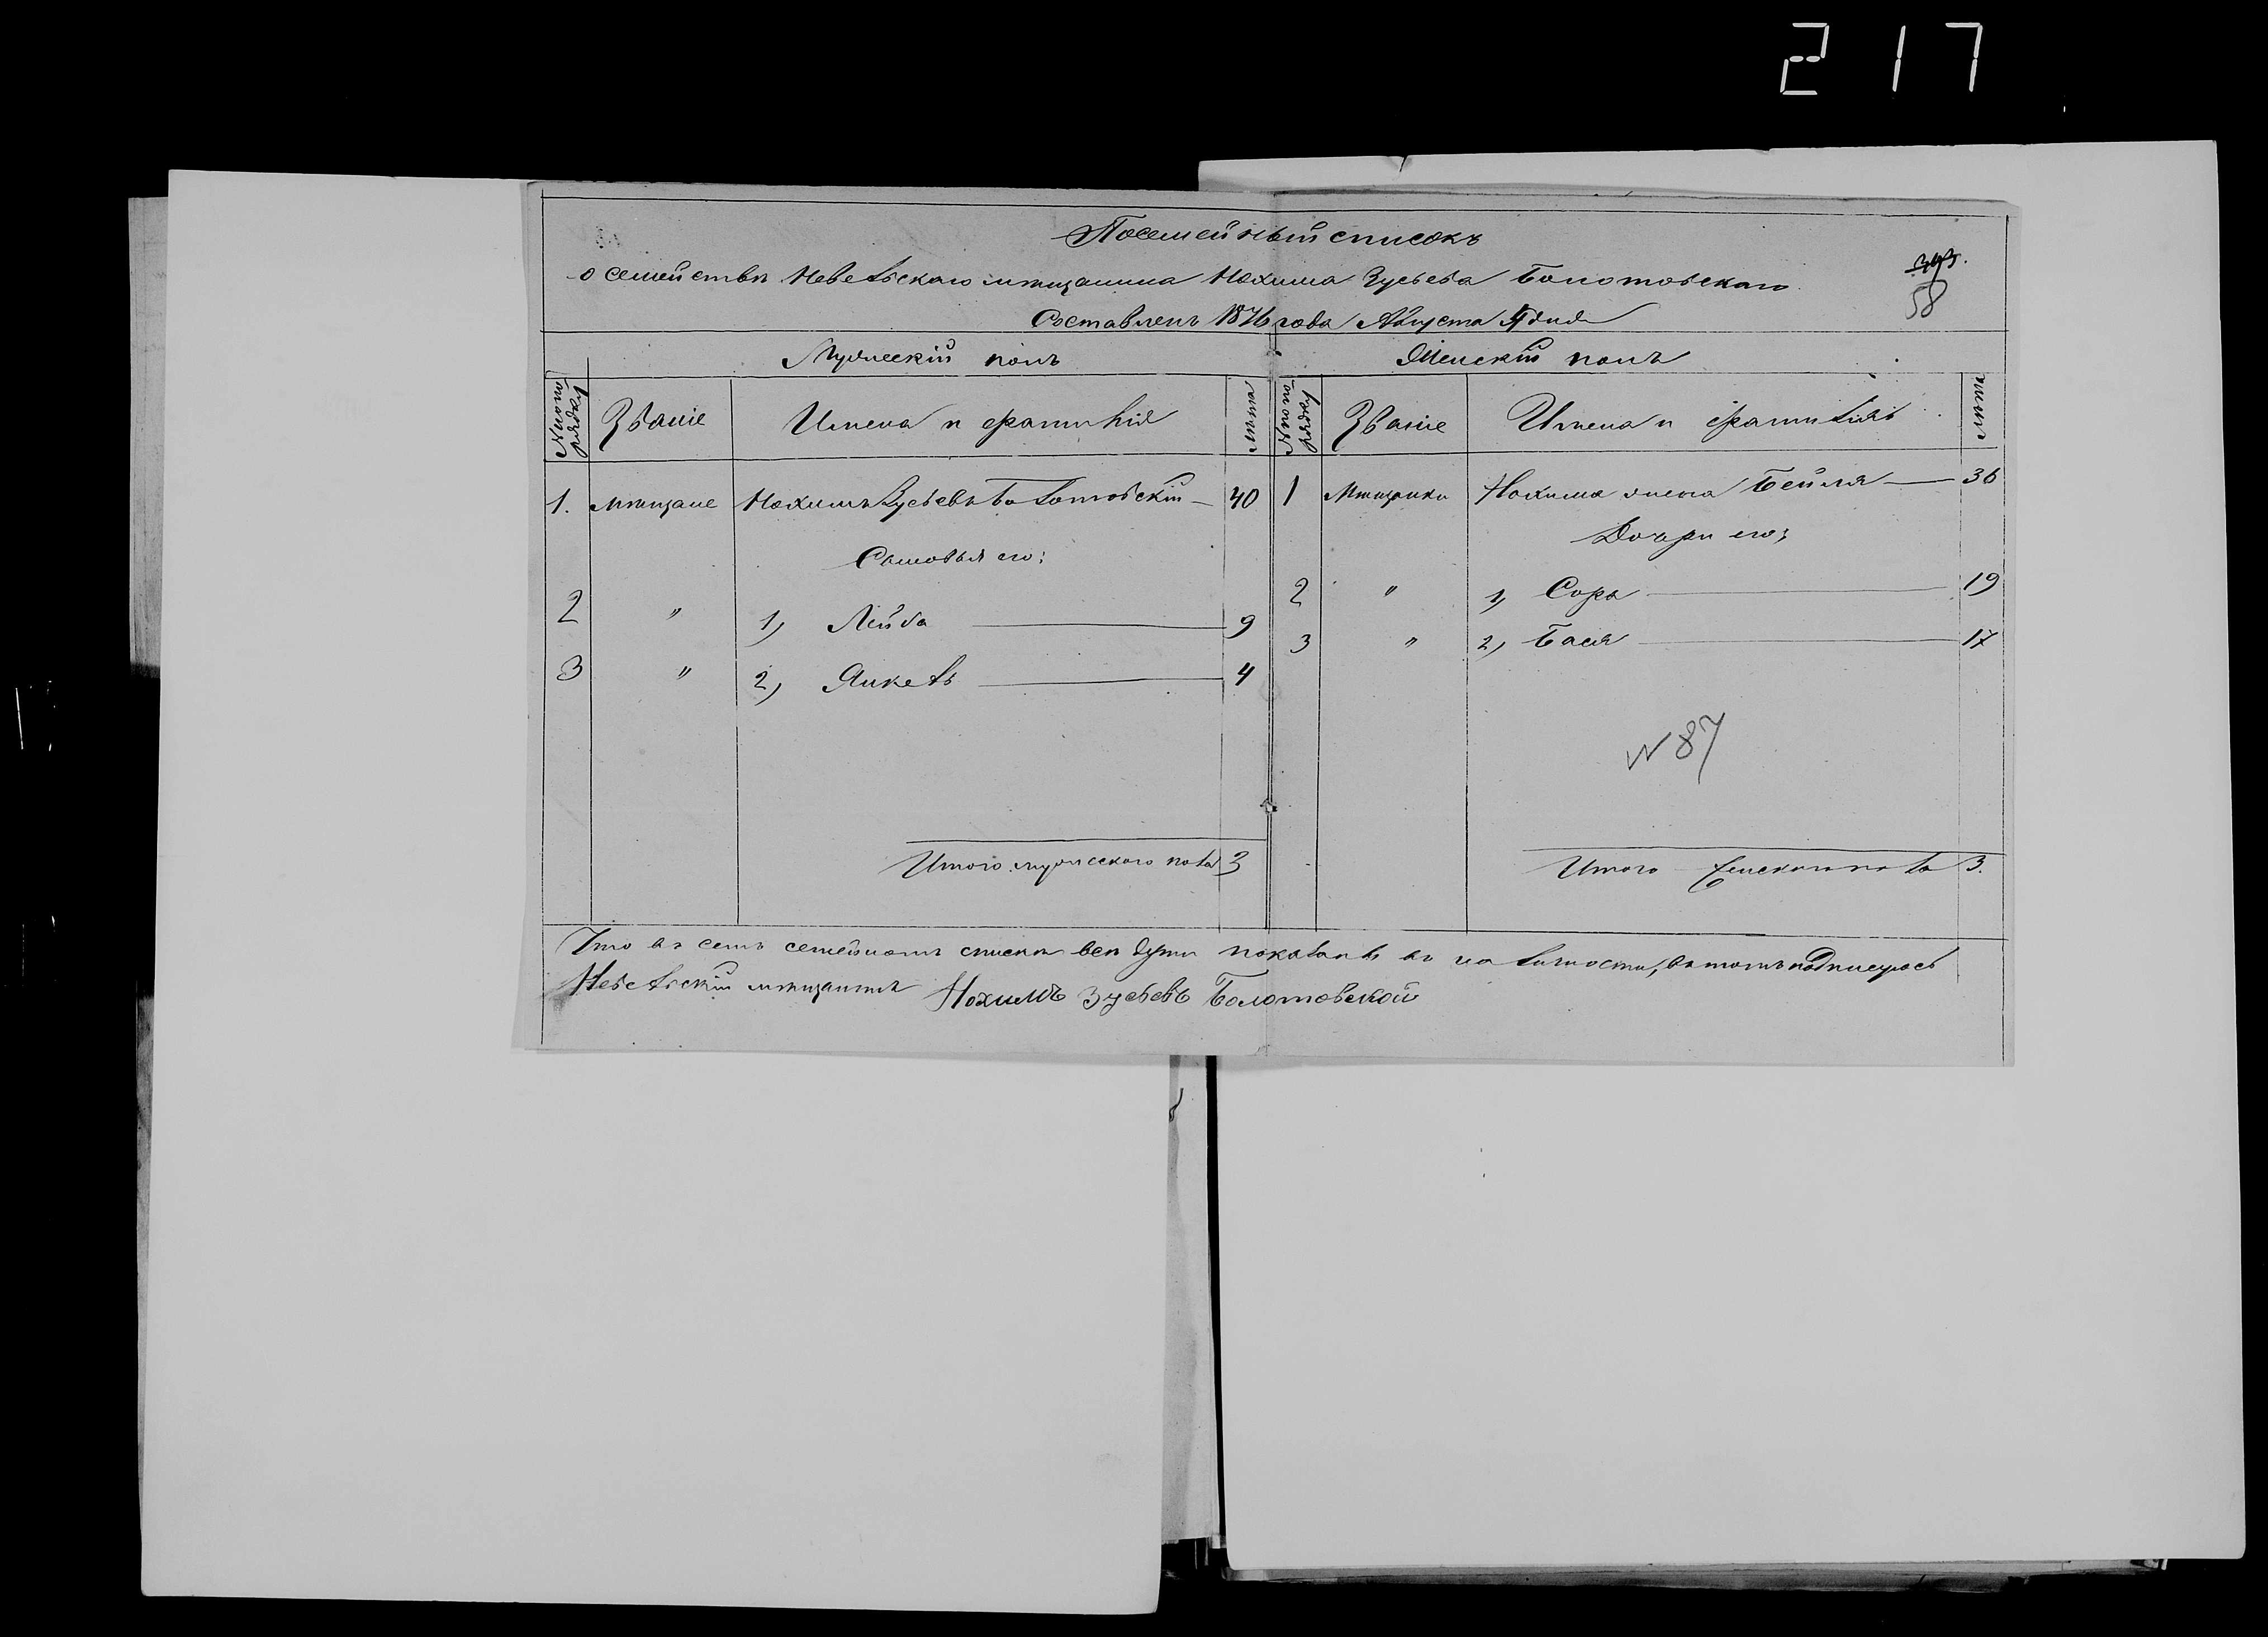 217
Посемейный списокъ
о семействѣ Невельскаго мѣщанина Нохима Зусьева Болотовскаго
58
Составленъ 1876 года Августа 4 дня
Мужескій полъ
Женскій полъ
№ по порядку
Званіе
Имена и фамилія
Лѣта
№ по порядку
Званіе
Имена и фамилія
Лѣта
1. мѣщане Нохимъ Зусьевъ Болотовскій — 40
1 Мѣщанки Нохима жена Бейля — 36
Сыновья его:
Дочери его;
2 " 1) Лейба — 9
2 " 1) Сора — 19
3 " 2) Янкель — 4
3 " 2) Бася — 17
№ 87
Итого мужескаго пола 3
Итого женскаго пола 3.
Что въ семъ семейномъ спискѣ всѣ души показаны въ наличности, въ томъ подписуюсь
Невельскій мѣщанинъ Нохимъ Зусьевъ Болотовской